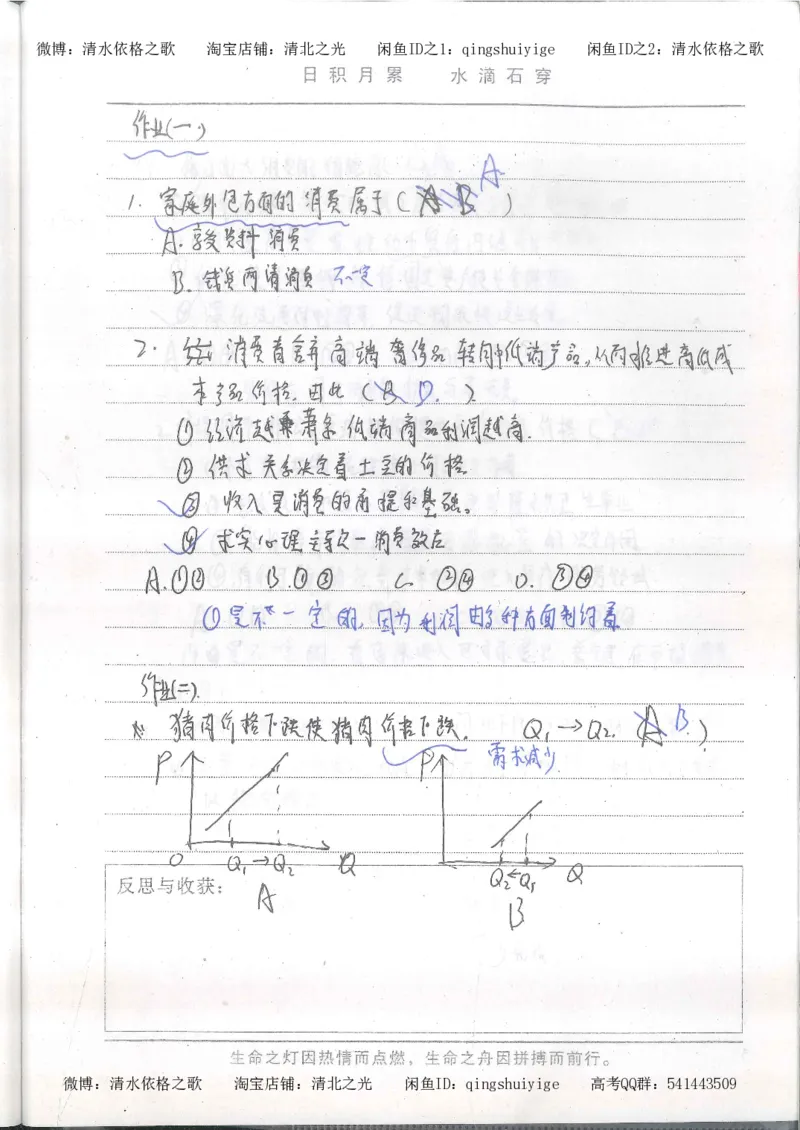 微博：清水依格之歌 淘宝店铺：清北之光 闲鱼ID之1：qingshuiyige 闲鱼ID之2：清水依格之歌
日积月累 水滴石穿
作业(一)
A
1. 家庭外包方面的消费属于( A B )
A. 享受资料消费
B. 钱货两清消费 不一定
2. 消费者舍弃高端奢侈品转向中低端产品，从而推进高低成
本商品价格，因此 ( B D. )
① 经济越萧条低端商品利润越高.
② 供求关系决定着土豆的价格
③ 收入是消费的前提和基础。
④ 求实心理主导这一消费效应
A.①② B.①③ C. ②④ D. ③④
①是不一定的,因为利润由多种方面制约着
作业(二)
猪肉价格下跌使猪肉价格下跌. Q₁→Q₂. (A B )
需求减少
P P
O Q₁→Q₂ Q Q₂←Q₁ Q
反思与收获：
A B
生命之灯因热情而点燃，生命之舟因拼搏而前行。
微博：清水依格之歌 淘宝店铺：清北之光 闲鱼ID：qingshuiyige 高考QQ群：541443509